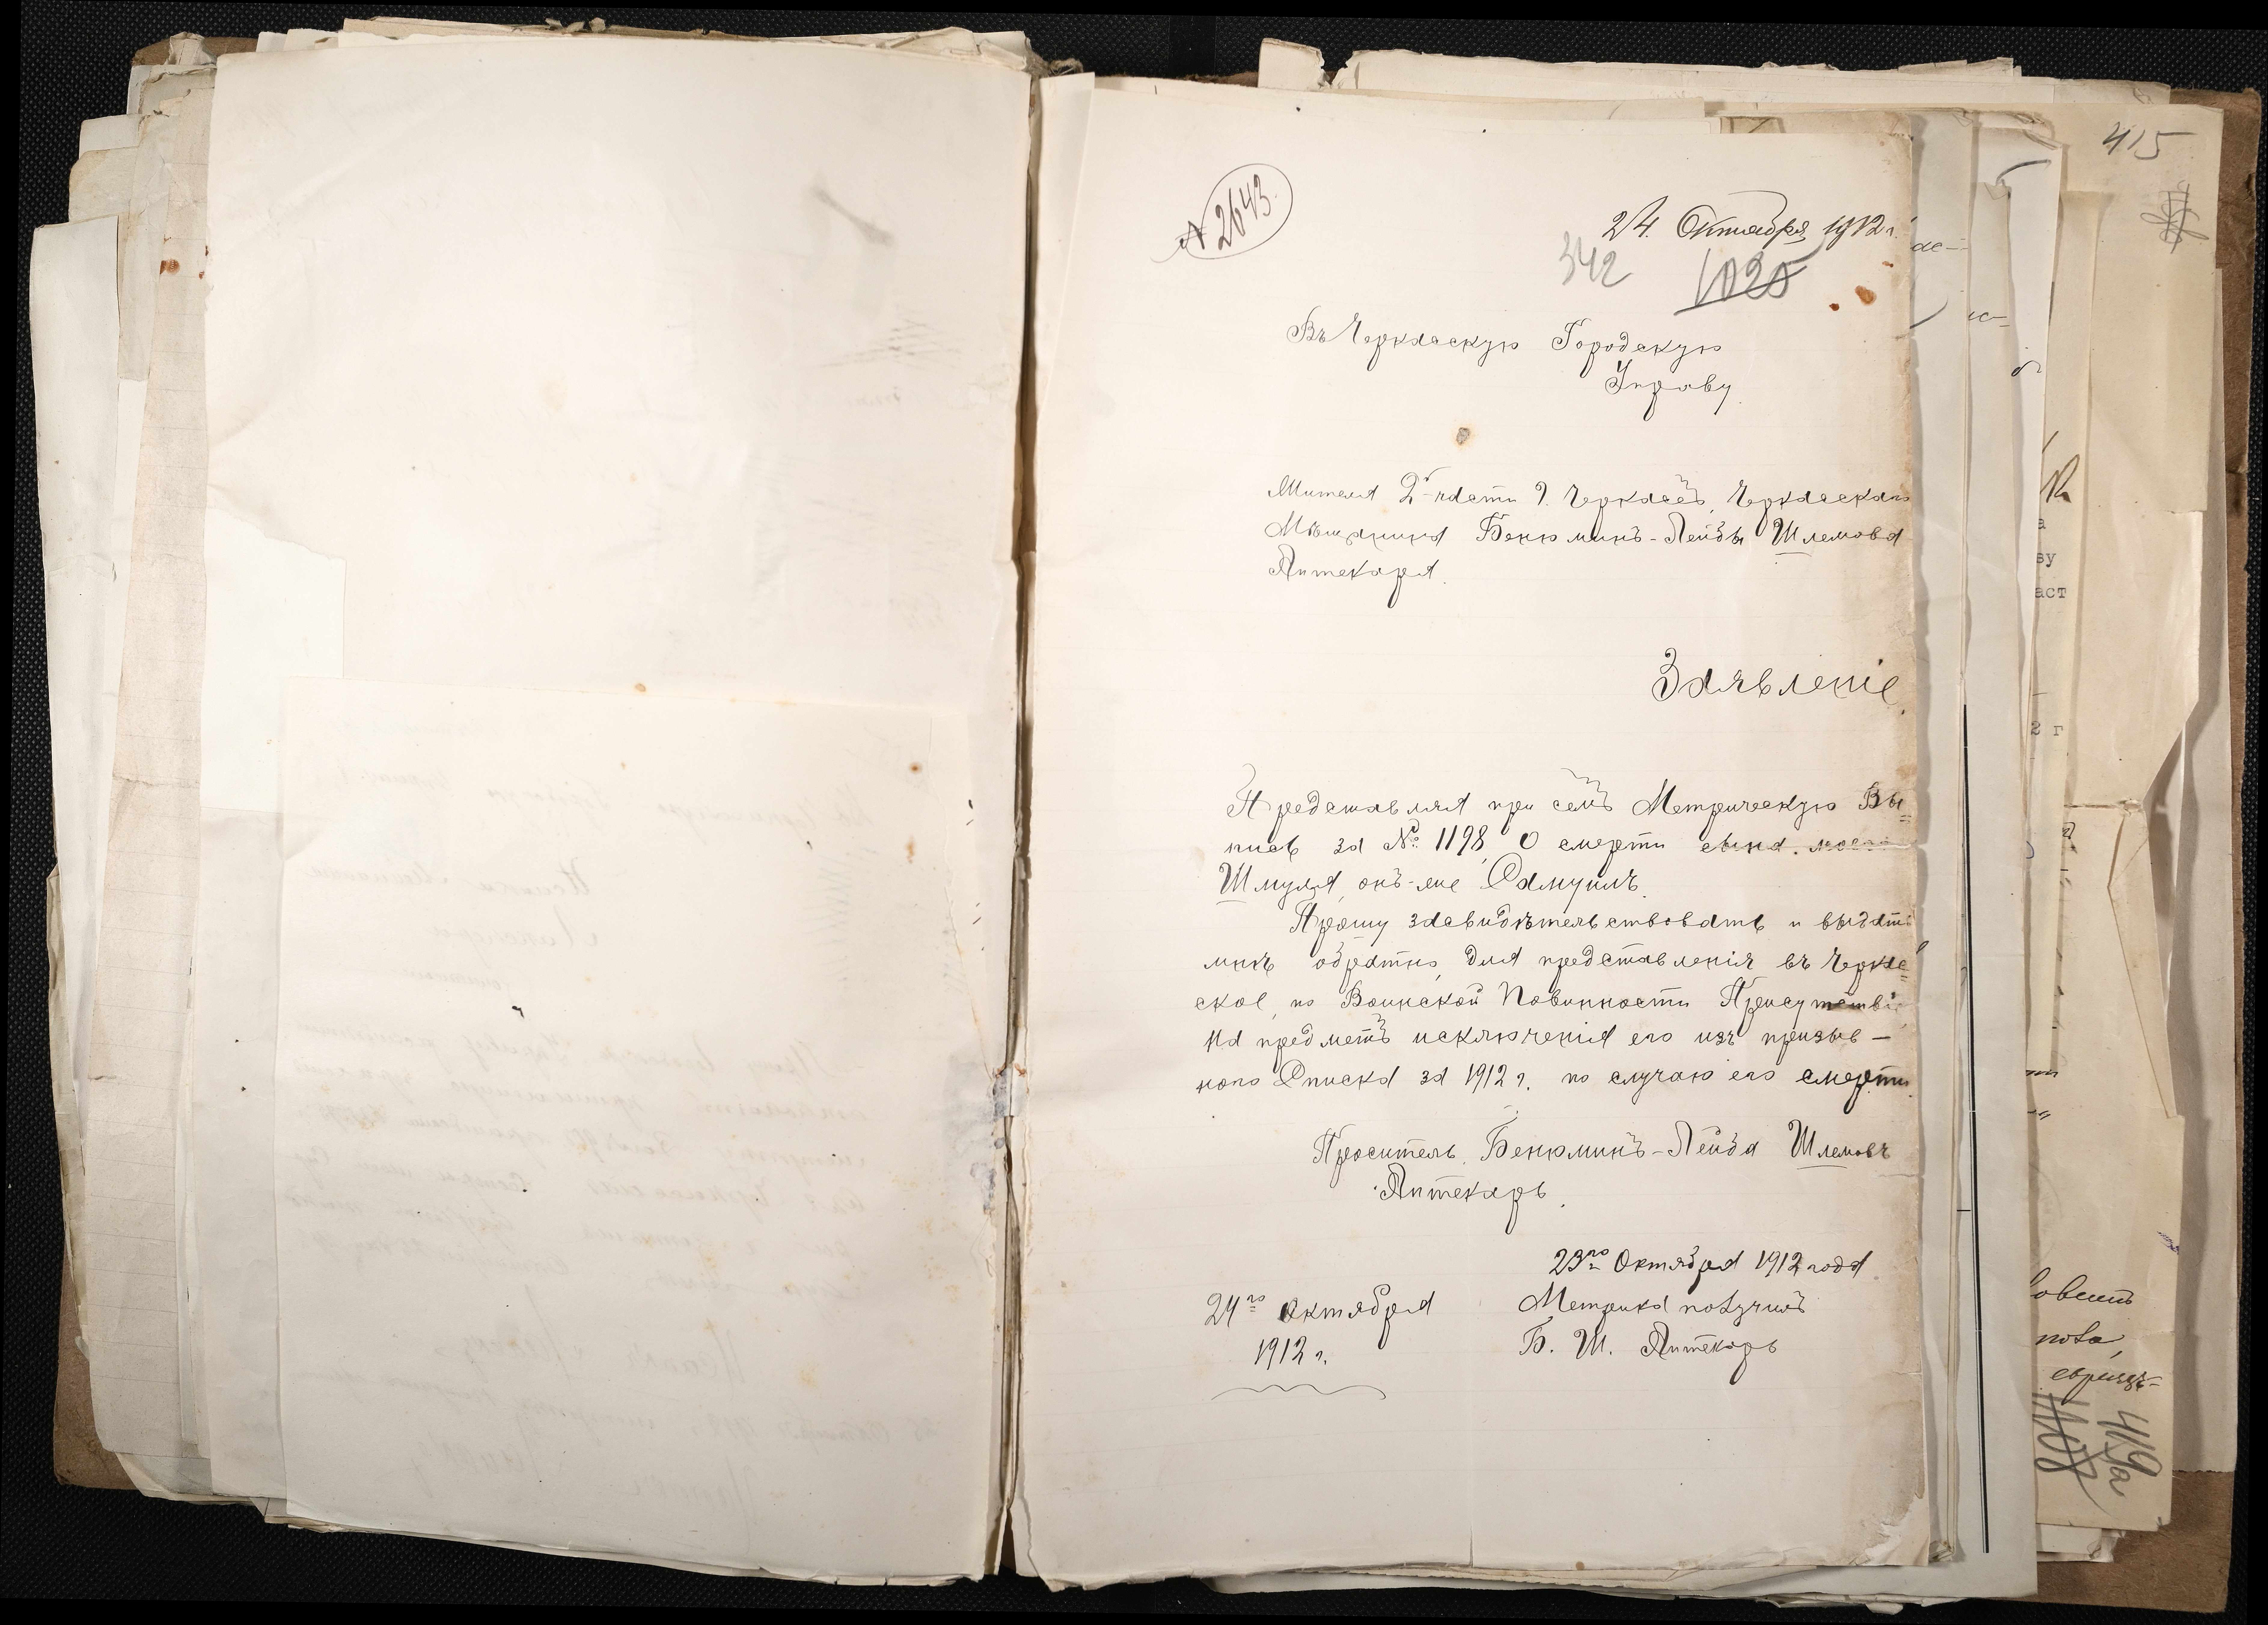 № 2643
24. Октября 1912 г.
342 1025
Въ Черкаскую Городскую
Управу
Жителя 2й части г. Черкасъ, Черкаскаго
Мѣщанина Бенюминъ-Лейзы Шлемова
Аптекаря.
Заявленіе.
Представляя при семъ Метрическую Вы=
пись за № 1198, о смерти сына моего
Шмуля, онъ-же Самуилъ.
Прошу засвидѣтельствовать и выдать
мнѣ обратно, для представленія въ Черка=
ское, по Воинской Повинности Присутствіе,
на предметъ исключенія его изъ призыв-
ного Списка за 1912 г. по случаю его смерти.
Проситель Бенюминъ-Лейза Шлемовъ
Аптекарь.
23го Октября 1912 года
24го Октября
1912 г.
Метрика получилъ
Б. Ш. Аптекарь
415
ву
аст
2 г
нова,
419